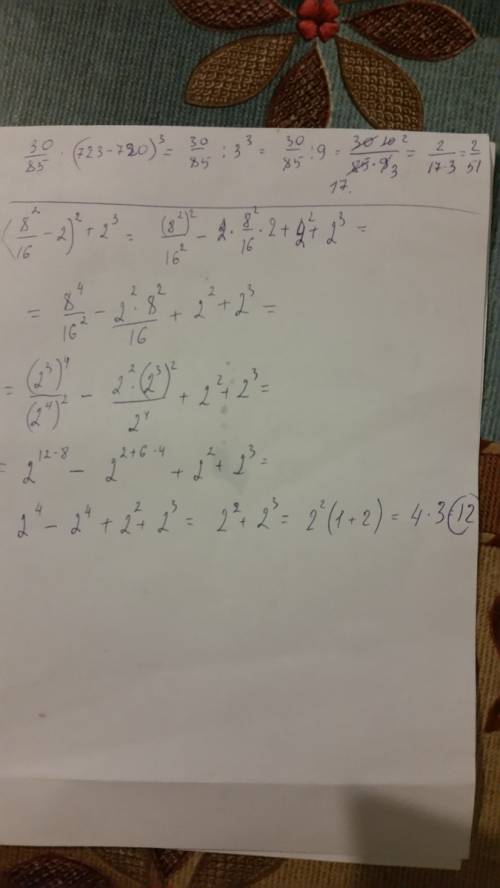 30/85 · (723-720)³ = 30/85 : 3³ = 30/85 : 9 = 30 10 2/85·9 3 = 2/17·3 = 2/51
17.
(8²/16 - 2)² + 2³ = (8²)²/16² - 2·8²/16·2 + 2² + 2³ =
= 8⁴/16² - 2²·8²/16 + 2² + 2³ =
= (2³)⁴/(2⁴)² - 2²·(2³)²/2⁴ + 2² + 2³ =
= 2¹²⁻⁸ - 2²⁺⁶⁻⁴ + 2² + 2³ =
2⁴ - 2⁴ + 2² + 2³ = 2² + 2³ = 2²(1+2) = 4·3 = 12